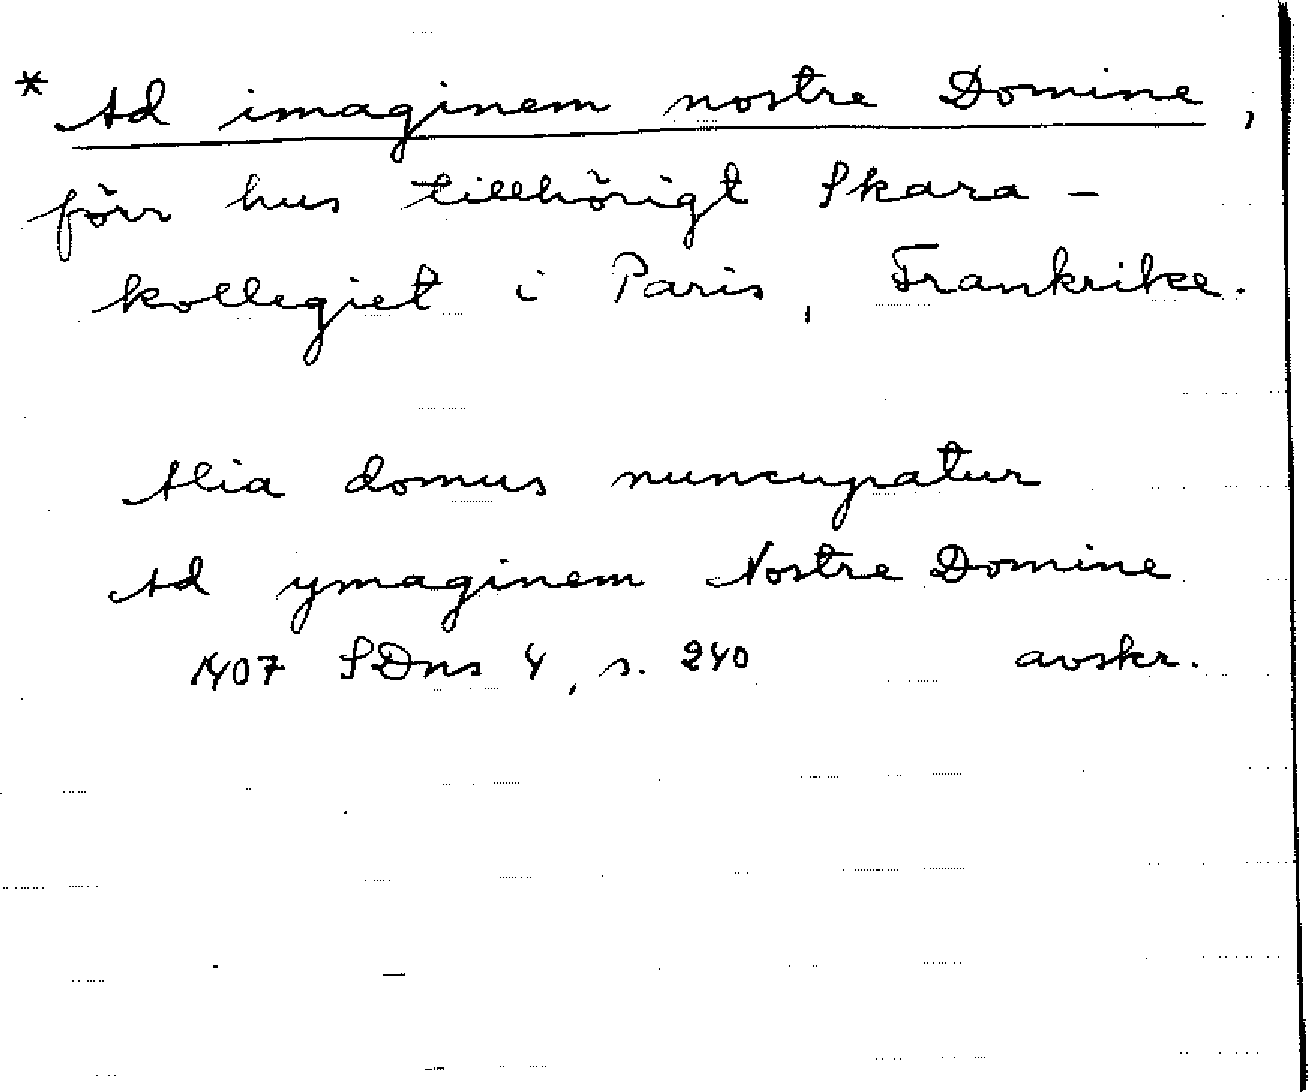 * Ad imaginem nostre Domine,
förr hus tillhörigt Skara-
kollegiet i Paris, Frankrike.
Alia domus nuncupatur
Ad ymaginem Nostre Domine
1407 SDns 4, s. 240 avskr.